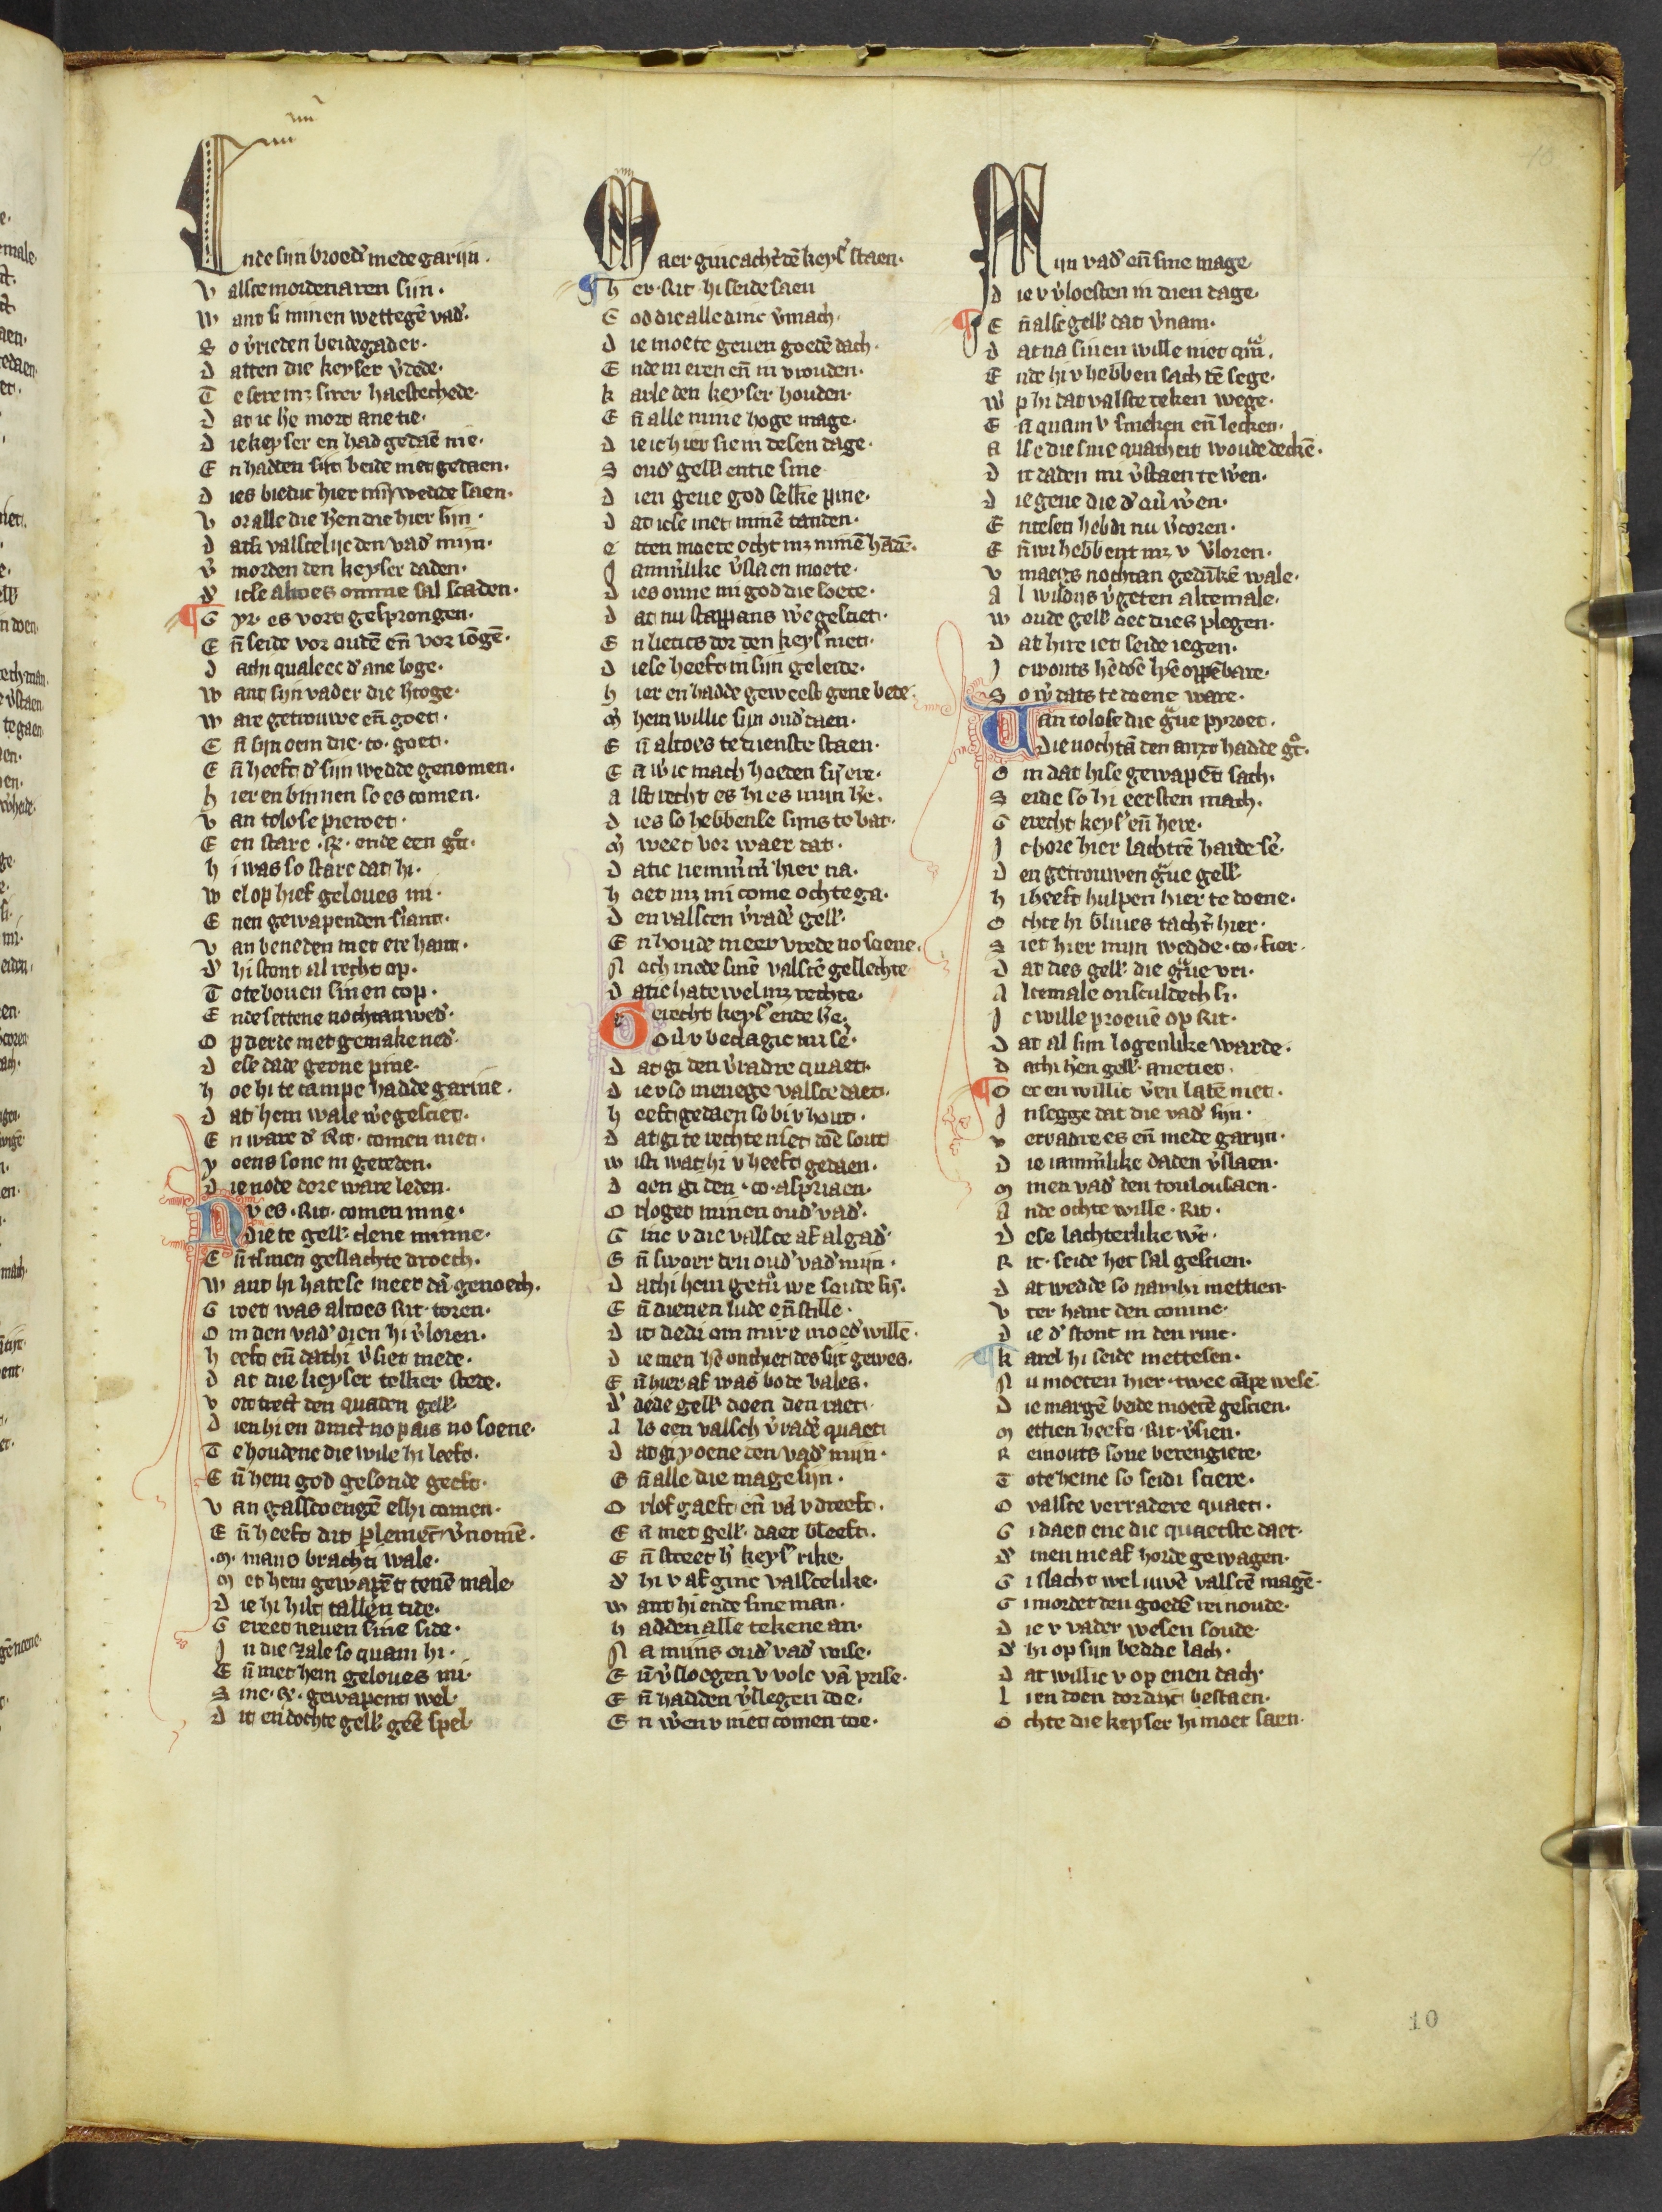 Ende sijn broed' mede garijn.
V alsce mordenaren sijn.
W ant si minen wettegē vad'.
S o v'rieden beide gader.
D atten die keyser v'dede.
D at ic he mort ane tie.
D ie keyser en had gedaē nie.
E n hadden sijt beide met gedaen.
D ies biedic hier mijn wedde saen.
V or alle die h'en die hier sijn.
D at si valscelijc den vad' mijn.
V' morden den keyser daden.
D' icse altoes omme sal scaden.
G yr. es vort gesprongen.
E n̄ seide vor oudē en̄ vor iōgē.
D at hi qualeec d' ane loge.
W ant sijn vader die h'toge.
W are getrouwe en̄ goet.
E n̄ sijn oem die .co. goet.
E n̄ heeft d' sijn wedde genomen.
H ier en binnen so es comen.
V an tolose pierret.
E en starc .R. ende een
H i was so starc dat hi.
W el op hief geloues mi.
E nen gewapenden s'iant.
V an beneden met ere hant.
D' hi stont al recht op.
T ote bouen sinen cop.
E nde settene nochtan wed'.
O p derde met gemake ned'.
D ese dade gerne pine.
H oe hi te campe hadde garine.
D at hem wale w'e gesciet.
E n ware d' Rit. comen niet.
Y oens sone in gereden.
D ie node dore ware leden.
N v es .Rit. comen inne.
Die te gell' clene minne.
E n̄ tsinen geslachte droech.
W ant hi hatese meer dā genoech.
G roet was altoes Rit. toren.
O m den vad' dien hi v'loren.
H eeft en̄ dat hi v'siet mede.
D at die keyser telker stede.
V ort trect den quaden gell'
D ien hi en dinct no pais no soene.
T e houdene die wile hi leeft.
E n̄ hem god gesonde geeft.
V an gasscoengē es hi comen.
E n̄ heeft dit plemēt v'nomē.
.M. mans bracht i wale.
M et hem gewapēt tenē male.
D ie hi hilt tallen tide.
G ereet neuen sine side.
I n die zale so quam hi.
E n̄ met hem geloues mi.
S ine .R. gewapent wel.
D it en dochte gell' geē spel.
Maer ginc acht' dē keys' staen.
H er .Rit. hi seide saen
G od die alle dinc v'mach.
D ie moete geuen goedē dach.
E nde in eren en̄ in vrouden.
K arle den keyser houden.
E n̄ alle mine hoge mage.
D ie ic hier sie in desen dage.
S oud' gell' entie sine
D ien geue god selke pine.
D at icse met minē tanden.
E tten moete ocht mz minē hādē.
J amm'like v'slaen moete.
D ies onne mi god die soete.
D at nu stappans w'e gesciet.
E n lietics dor den keys' niet.
D iese heeft in sijn geleide.
H ier en hadde geweest gene bede.
M' hem willic sijn oud'daen.
E n̄ altoes te dienste staen.
E n̄ w' ic mach hoeden sij' ere.
A lst recht es hi es mijn h'e.
D ies so hebbense sijns te bat.
M' weet vor waer dat.
D atic nemm'm' hier na.
H oet mz mi come ochte ga.
D en valscen v'rad' gell'.
E n houde meer vrede no soene.
N och mede sinē valscē geslechte
D atic hate wel mz rechte.
Gerecht keys' ende h'e.
Ou' v bedagic mi se'.
D at gi den v'radre quaet.
D ie v so menege valsce daet.
H eeft gedaen so bi v hout.
D at gi te rechte niet doē sout
W isti wat hi v heeft gedaen.
D oen gi den .co. aspriaen.
O rloget minen oud' vad'.
G inc v die valsce af algad'.
E n̄ swoer den oud' vad' mijn.
D at hi hem getr'we soude sij'.
E n̄ dienen lude en̄ stille.
D it dedi om mire moed' willē.
D ie men hē onthiet des sijt gewes.
E n̄ hier af was bode bales.
D' dede gell' doen den raet.
A ls een valsch v'rad' quaet
D at gi yoene den vad' mijn.
E n̄ alle die mage sijn.
O rlof gaeft en̄ vā v dreeft.
E n̄ met gell' daer bleeft.
E n̄ street h' keys' rike.
D' hi v af ginc valscelike.
W ant hi ende sine man.
H adden alle tekene an.
N a mijns oud' vad' wise.
E n̄ v'sloegen v volc vā prise.
E n̄ hadden v'slegen doe.
E n w'en v niet comen toe.
Mijn vad' en̄ sine mage
D ie v v'loesten in dien dage.
E n̄ alse gell' dat v'nam.
D at na sinen wille niet
E nde hi v hebben sach tē sege.
W' p hi dat valsce teken wege.
E n̄ quam v smeken en̄ lecken.
A lse die sine quatheit woude deckē.
D it daden mi v'staen te w'en.
D iegene die d' ou' w'en.
E ntesen hebdi nu v'coren.
E n̄ wi hebbent mz v v'loren.
V maegs nochtan gedīkē wale.
A l wildijs v'geten altemale.
W oude gell' oec dies plegen.
D at hire iet seide iegen.
S o w' dats te doene ware.
Van tolose die g'ue pyroet.
Die nochtā den anxt hadde
O m dat hise gewapēt sach.
S eide so hi eersten mach.
G erecht keys' en̄ here.
J c hore hier lachtrē harde se'.
D en getrouwen g'ue gell'
H i heeft hulpen hier te doene.
O chte hi bliues tacht' hier.
S iet hier mijn wedde .co. fier.
D at dies gell' die g'ue vri.
A ltemale onsculdech si.
J c wille proeuē op Rit.
D at al sijn logenlike warde.
D at hi h'en gell' anetiet.
O ec en willic v'en latē niet.
J n segge dat die vad' sijn.
V erradre es en̄ mede garijn.
D ie iamm'like daden v'slaen.
M inen vad' den toulousaen.
A nde ochte wille .Rit.
D ese lachterlike w't.
R it. seide het sal gescien.
D at wedde so nam hi mettien
V ter hant den coninc.
D ie d' stont in den rinc.
K arel hi seide mettesen.
N u moeten hier twee cāpe wesē
D ie margē beide moetē gescien.
M ettien heeft .Rit. v'sien.
R einouts sone berengiere.
T ote heme so seidi sciere.
O valsce verradere quaet.
G i daet ene die quaetste daet.
D' men me af horde gewagen.
G i slacht wel uwē valscē magē.
G i mordet den goedē reinoude.
D ie v vader wesen soude.
D' hi op sijn bedde lach.
D at willic v op enen dach
L ien doen dor dijt bestaen.
O chte die keyser hi moet saen.
10